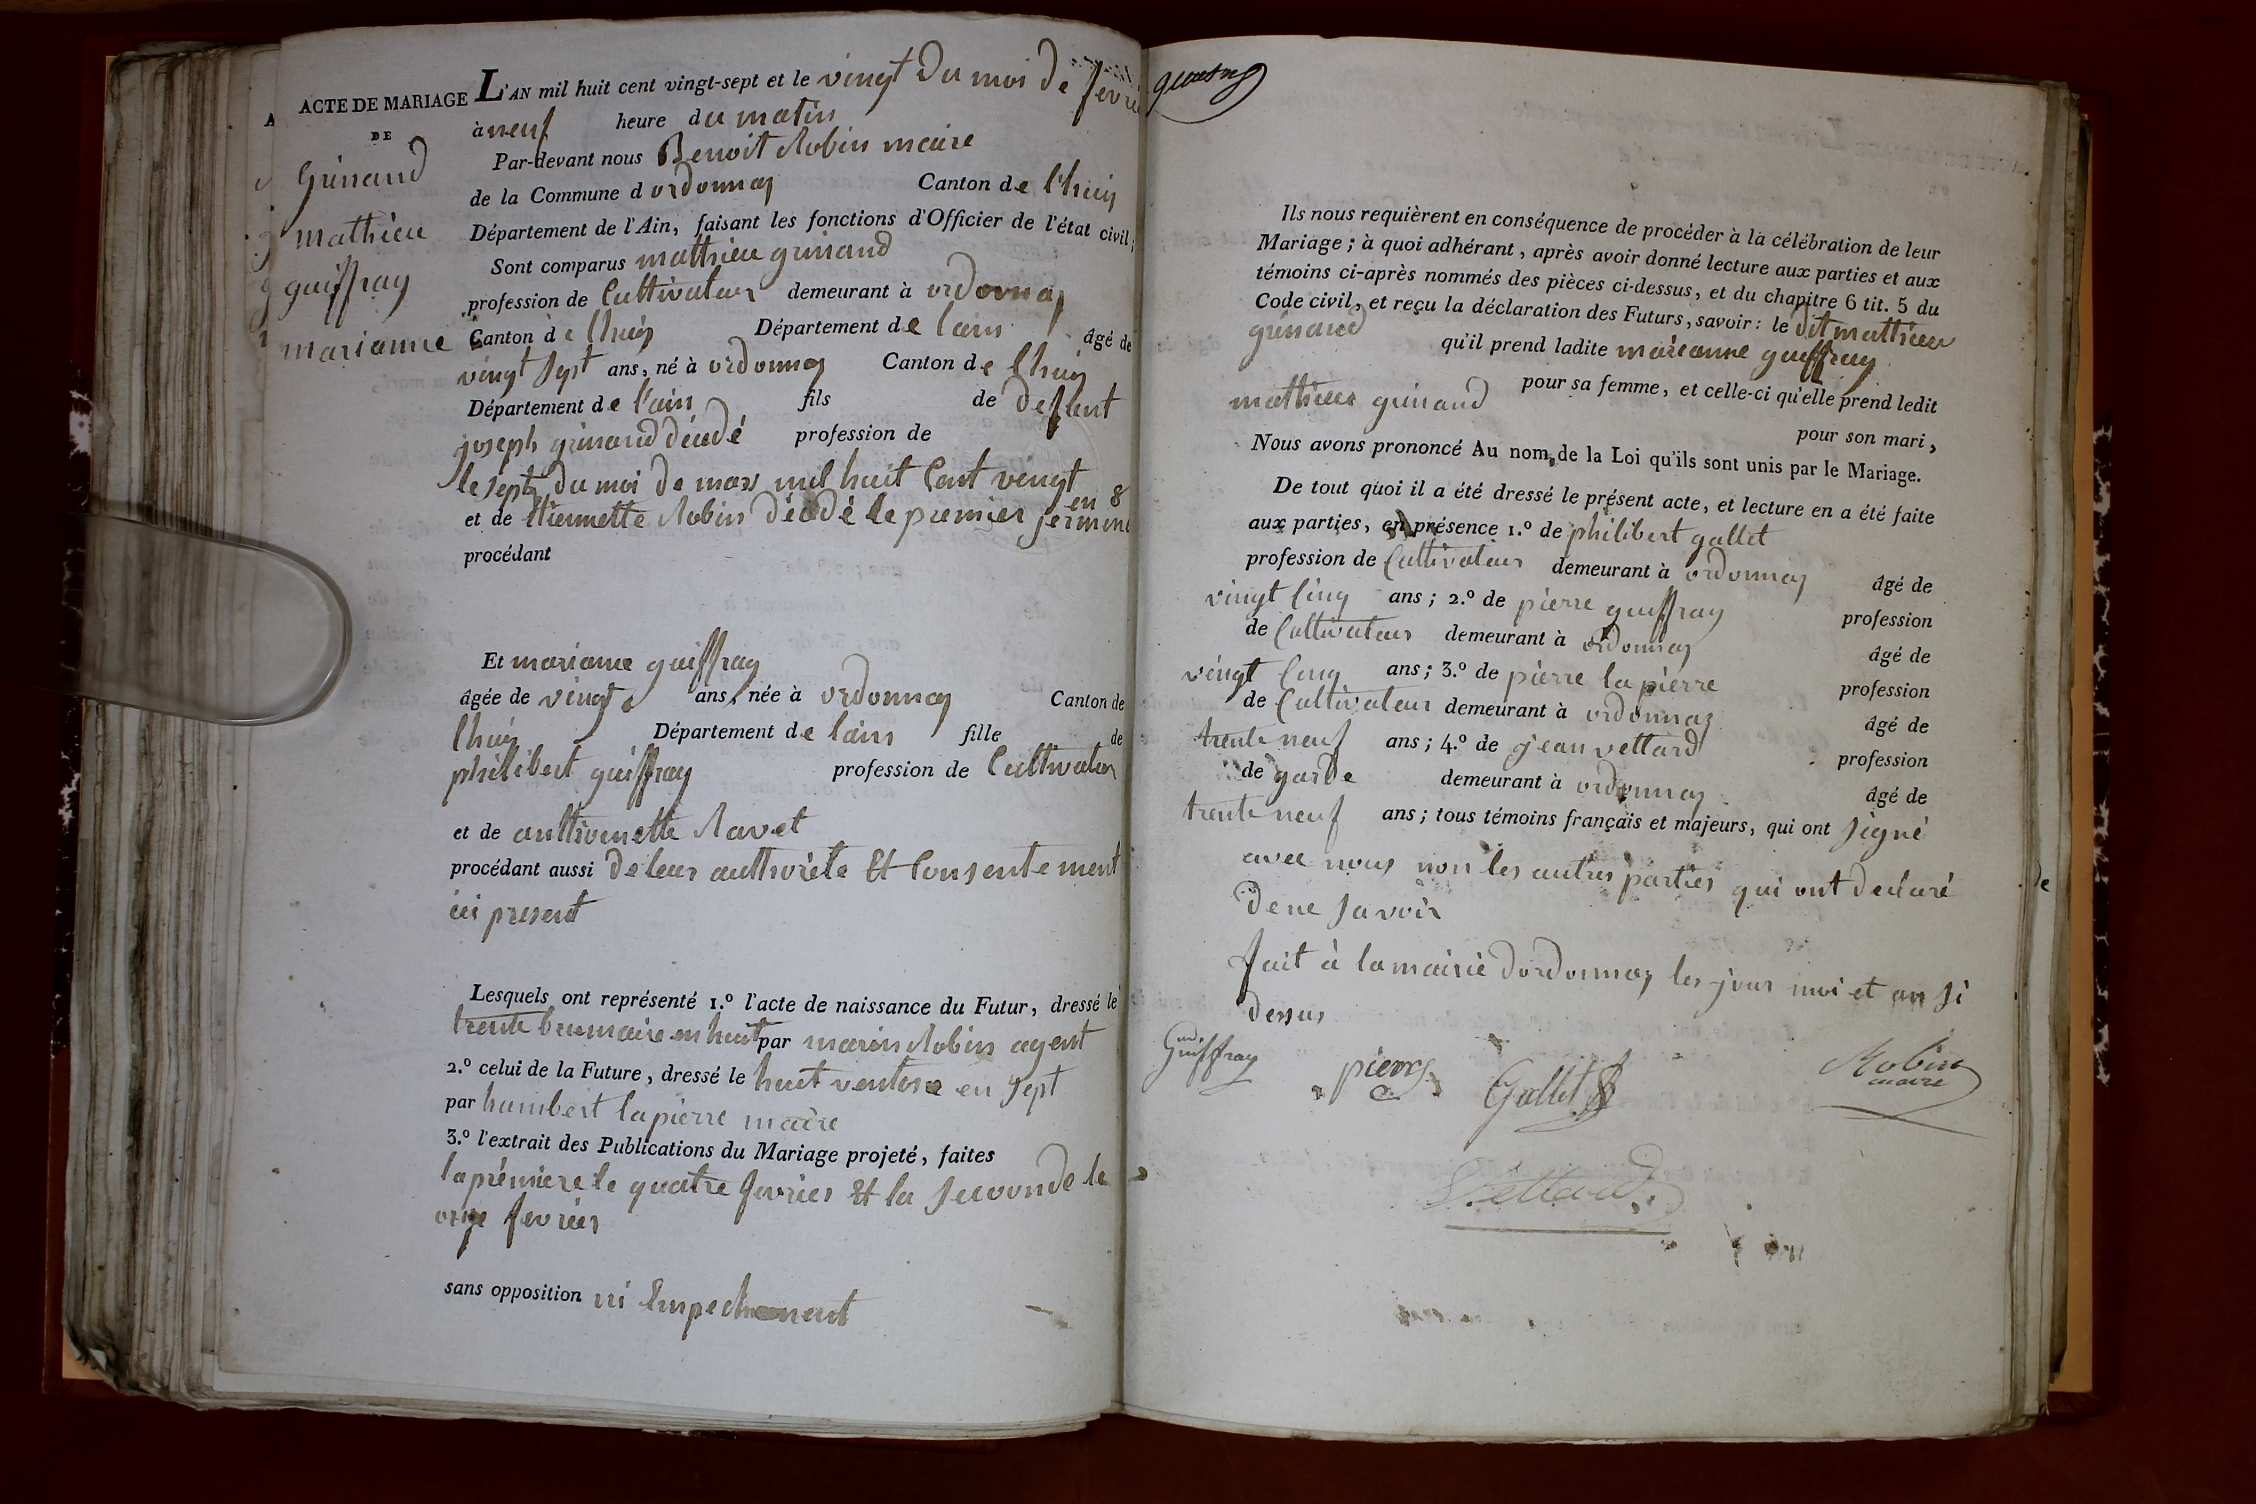 ACTE DE MARIAGE
DE
Grinand
mathieu
guiffray
marianne
L'AN mil huit cent vingt-sept et le vingt Du moi de fevrie
à neuf heure du matin
Par-devant nous Benoit Robin maire
de la Commune d ordonnaz Canton de l'huis
Département de l'Ain, faisant les fonctions d'Officier de l'état civil;
Sont comparus mathieu grinand
profession de Cultivateur demeurant à ordonnaz
Canton de lhuis Département de lain âgé de
vingt sept ans, né à ordonnaz Canton de lhuis
Département de l'ain fils de defunt
joseph grinand décédé profession de
le sept du moi de mars mil huit Cent vingt
et de Etiennette Robin décédé le premier jermina en 8
procédant
Et marianne guiffray
âgée de vingt ans, née à ordonnaz Canton de
lhuis Département de lain fille de
philibert guiffray profession de Cultivateur
et de anthoinette Ravet
procédant aussi de leur authorité Et Consentement
ici present
Lesquels ont représenté 1.º l'acte de naissance du Futur, dressé le
trente brumaire en huit par marin Robin agent
2.º celui de la Future, dressé le huit ventose en sept
par humbert lapierre maire
3.º l'extrait des Publications du Mariage projeté, faites
la prémiere le quatre fevrier Et la seconde le
onze fevrier
sans opposition ni Empechement
Ils nous requièrent en conséquence de procéder à la célébration de leur
Mariage; à quoi adhérant, après avoir donné lecture aux parties et aux
témoins ci-après nommés des pièces ci-dessus, et du chapitre 6 tit. 5 du
Code civil, et reçu la déclaration des Futurs, savoir: le dit mathieu
grinand qu'il prend ladite marianne guiffray
pour sa femme, et celle-ci qu'elle prend ledit
mathieu grinand pour son mari,
Nous avons prononcé Au nom de la Loi qu'ils sont unis par le Mariage.
De tout quoi il a été dressé le présent acte, et lecture en a été faite
aux parties, en présence 1.º de philibert gallet
profession de Cultivateur demeurant à ordonnaz âgé de
vingt Cinq ans; 2.º de pierre guiffray profession
de Cultivateur demeurant à ordonnaz âgé de
vingt Cinq ans; 3.º de pierre la pierre profession
de Cultivateur demeurant à ordonnaz âgé de
trente neuf ans; 4.º de jean vettard profession
de garde demeurant à ordonnaz âgé de
trente neuf ans; tous témoins français et majeurs, qui ont signé
avec nous non les autres parties qui ont declaré
de ne savoir
fait à la mairie dordonnaz les jour moi et an si
dessus
Guiffray pierre Gallet Robin
maire
Vettard